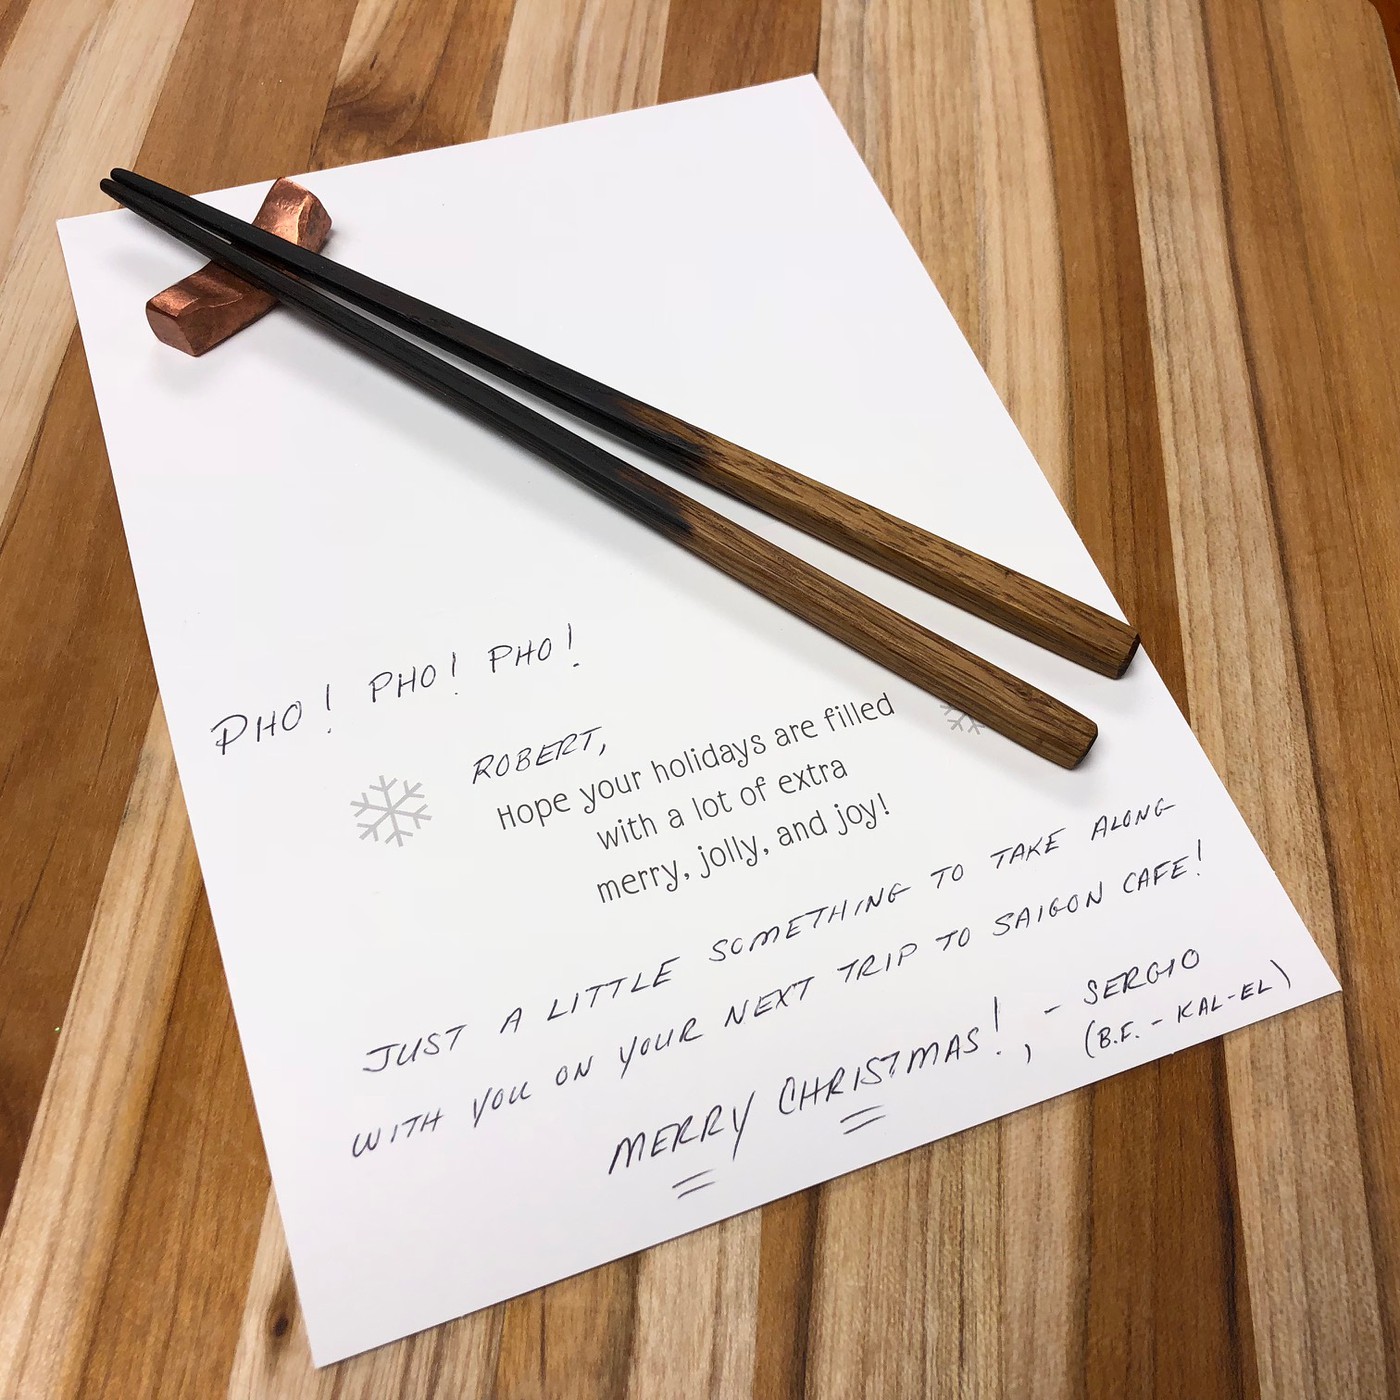 PHO! PHO! PHO!
ROBERT,
Hope your holidays are filled
with a lot of extra
merry, jolly, and joy!
JUST A LITTLE SOMETHING TO TAKE ALONG
WITH YOU ON YOUR NEXT TRIP TO SAIGON CAFE!
MERRY CHRISTMAS!, - SERGIO
(B.F. - KAL-EL)